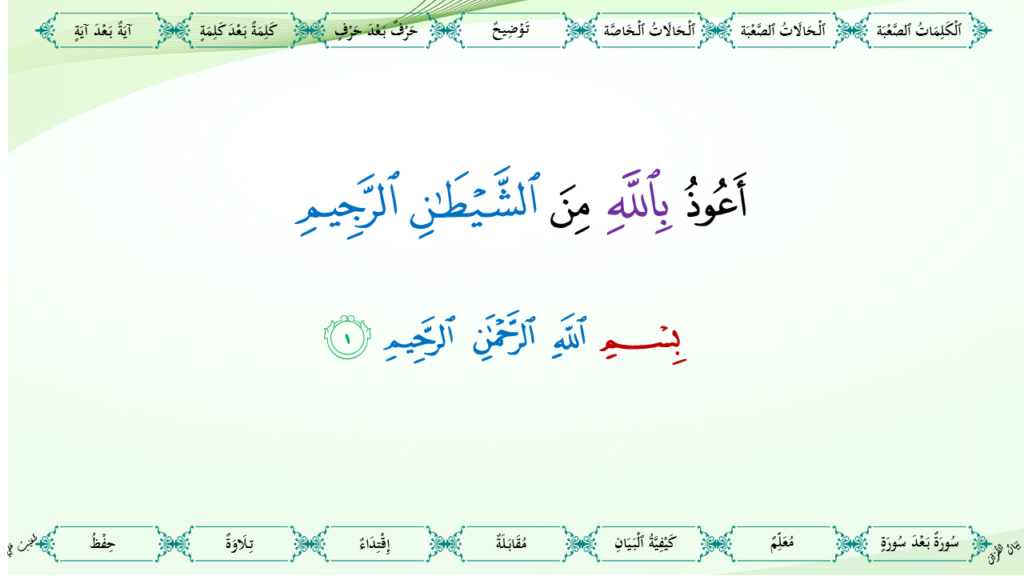 ٱلْكَلِمَاتُ ٱلصَّعْبَة ٱلْحَالَاتُ ٱلصَّعْبَة ٱلْحَالَاتُ ٱلْخَاصَّة تَوْضِيحٌ حَرْفٌ بَعْدَ حَرْفٍ كَلِمَةٌ بَعْدَ كَلِمَةٍ آيَةٌ بَعْدَ آيَةٍ
أَعُوذُ بِٱللَّهِ مِنَ ٱلشَّيْطَـٰنِ ٱلرَّجِيمِ
بِسْــــمِ ٱللَّهِ ٱلرَّحْمَٰنِ ٱلرَّحِيمِ ١
سُورَةٌ بَعْدَ سُورَةٍ مُعَلِّمٌ كَيْفِيَّةُ ٱلْبَيَانِ مُقَابَلَةٌ إِقْتِدَاءٌ تِلَاوَةٌ حِفْظٌ
بَيَانُ القُرْآن